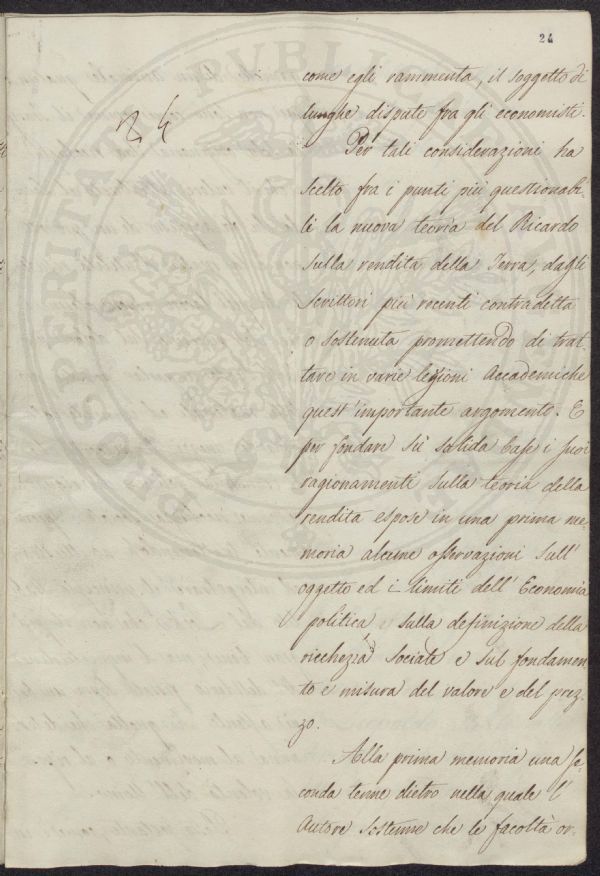 24
come egli rammenta, il soggetto di
lunghe dispute fra gli economisti.
Per tali considerazioni ha
scelto fra i punti più questionabi-
li la nuova teoria del Ricardo
sulla rendita della Terra, dagli
scrittori più recenti contradetta
o sostenuta promettendo di trat-
tare in varie lezioni Accademiche
quest'importante argomento. E
per fondare su solida base i suoi
ragionamenti sulla teoria della
rendita espose in una prima me-
moria alcune osservazioni sull'
oggetto ed i limiti dell'Economia
politica, sulla definizione della
ricchezza sociale e sul fondamen-
to e misura del valore e del prez-
zo.
Alla prima memoria una se-
conda tenne dietro nella quale l'
Autore sostenne che le facoltà or-